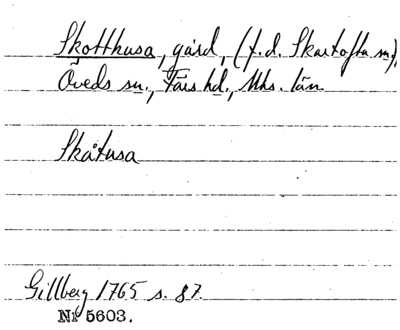 Skotthusa, gård, (f.d. Skartofta sn),
Öveds sn., Färs hd., Mhs. län
Skåtusa
Gillberg 1765 s. 87.
Nr 5603.